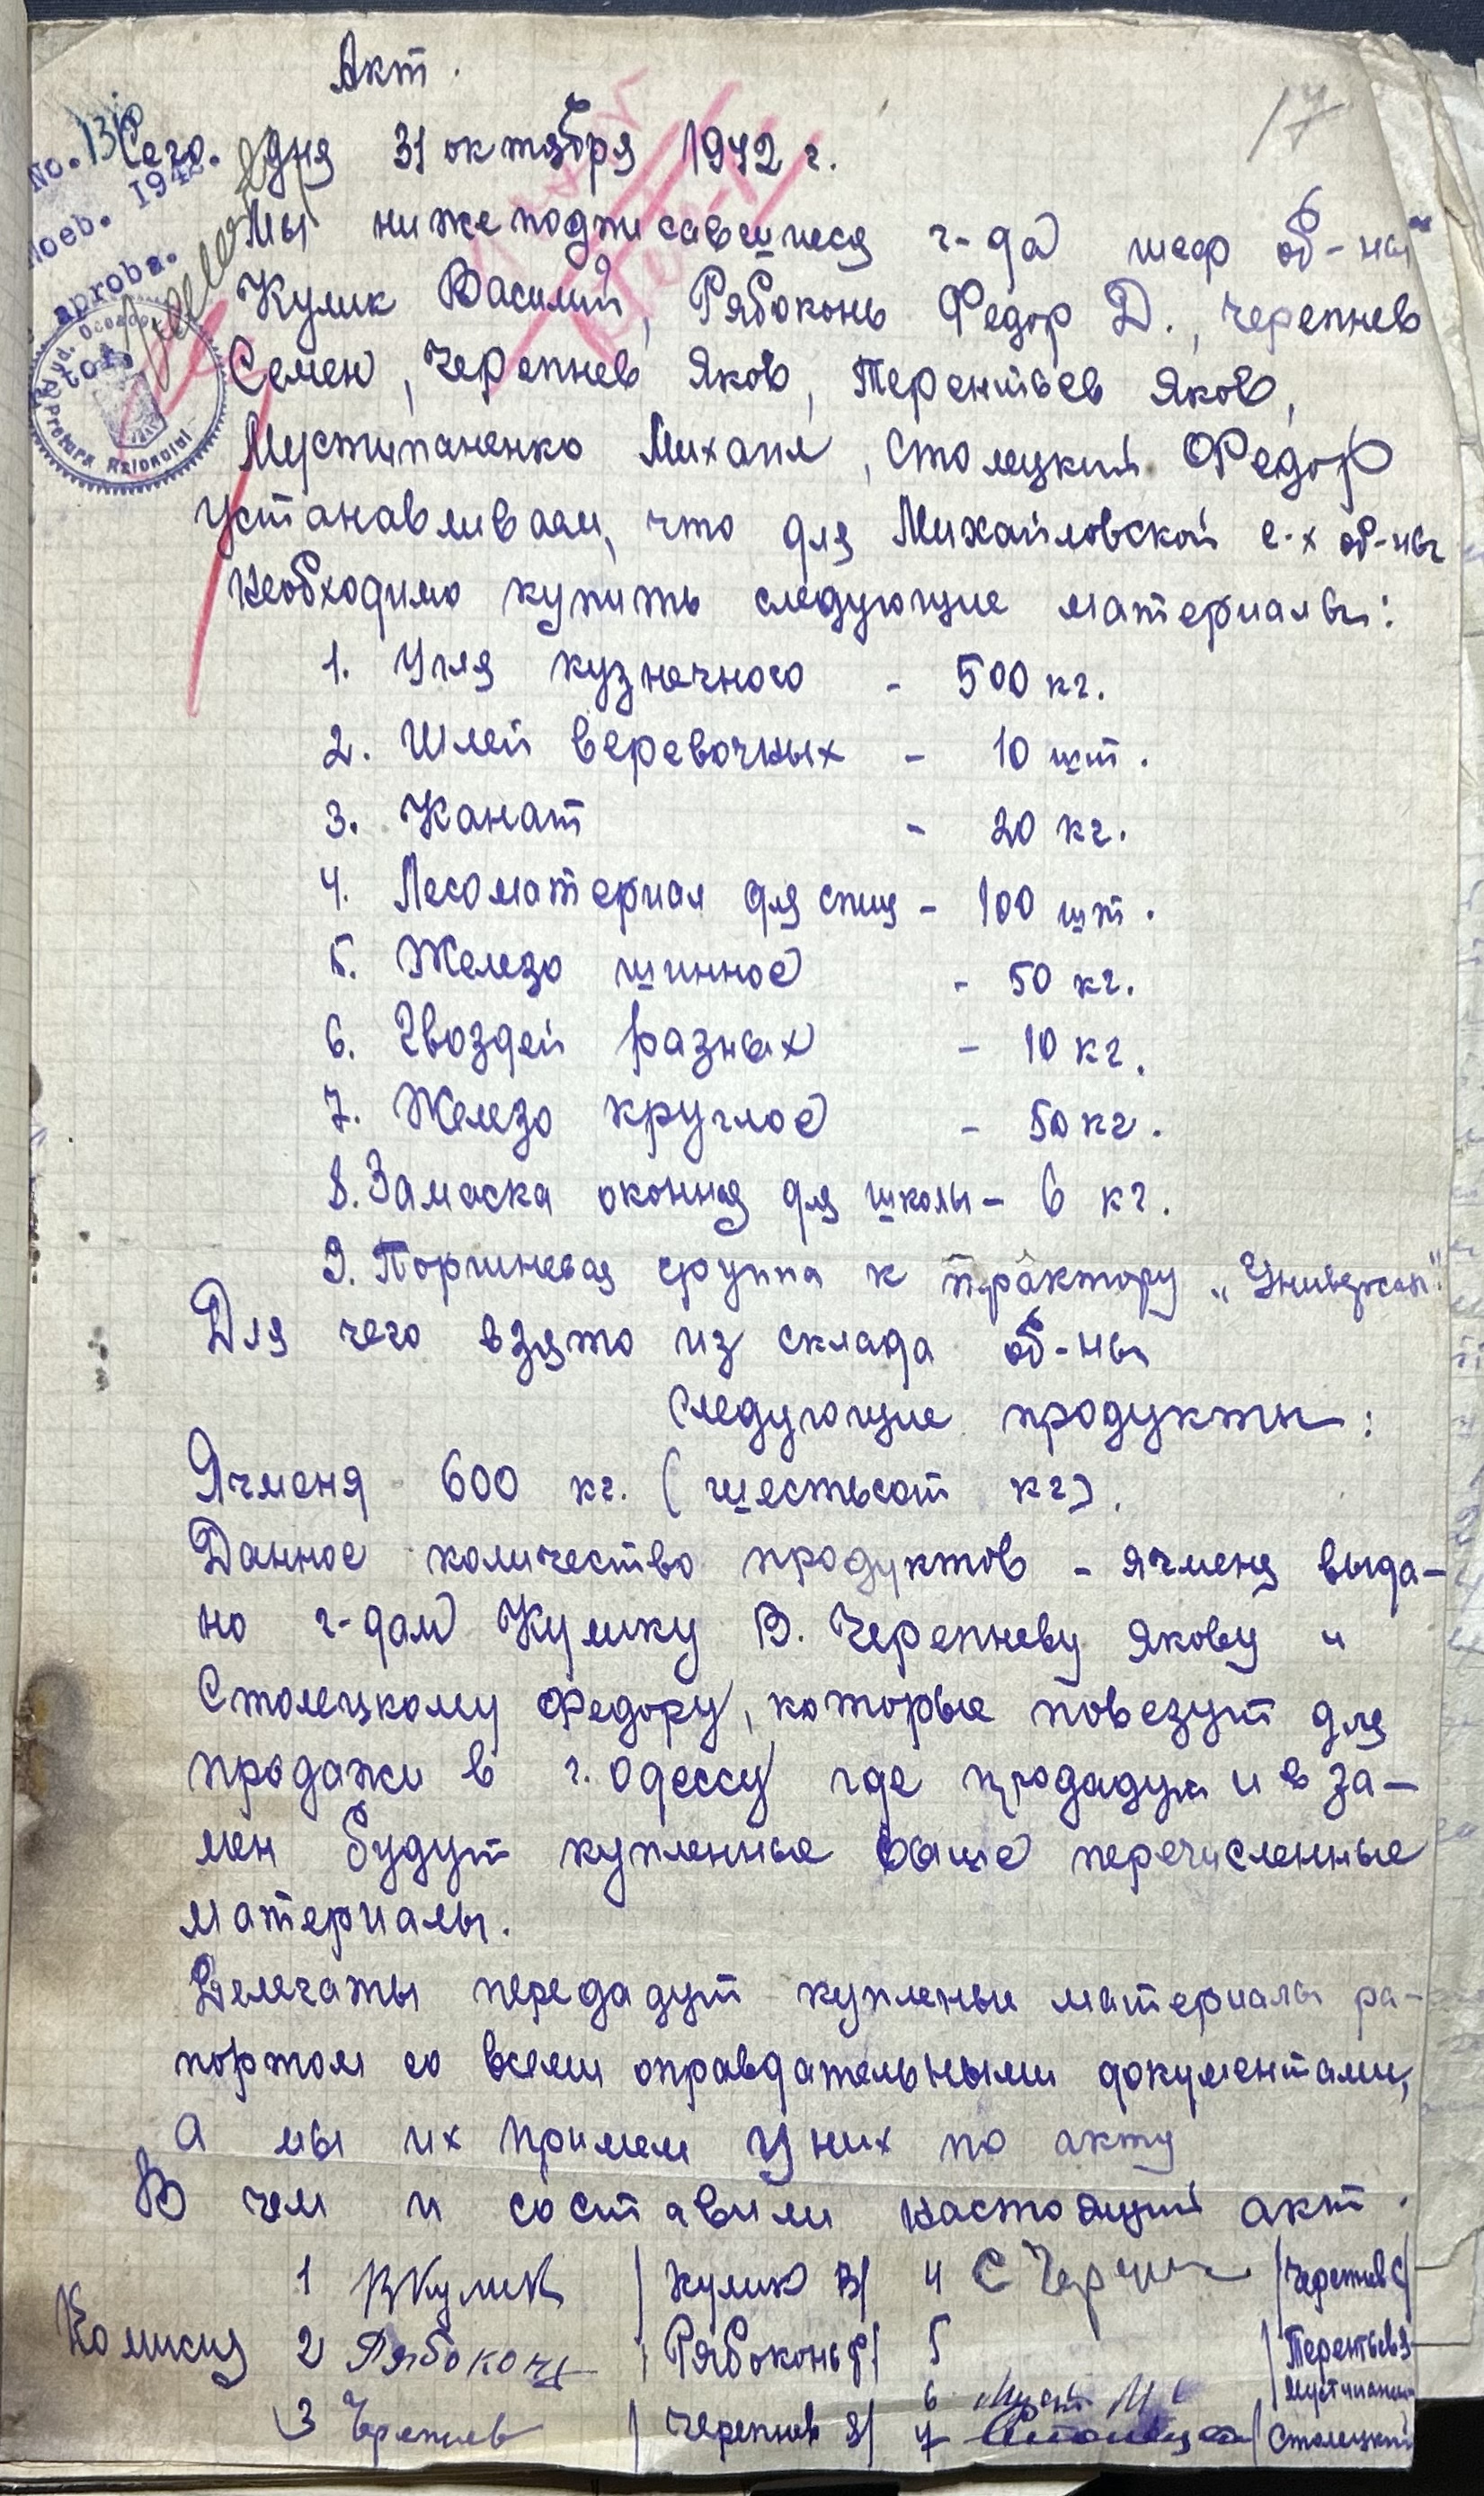 17
Акт.
No. 131
Сего. дня 31 октября 1942 г.
Noeb. 1942
Мы нижеподписавшиеся г-да шеф об-ны
aproba.
Кулик Василий, Рябоконь Федор Д., Черепнев
Семен, Черепнев Яков, Терентьев Яков,
Pretura Raionului
Мустипаненко Михаил, Столецкий Федор
устанавливаем, что для Михайловской с.-х об-ны
необходимо купить следующие материалы:
1. Угля кузнечного - 500 кг.
2. Шлей веревочных - 10 шт.
3. Канат - 20 кг.
4. Лесоматериал для спиц - 100 шт.
5. Железо шинное - 50 кг.
6. Гвоздей разных - 10 кг.
7. Железо круглое - 50 кг.
8. Замаска оконная для школы - 6 кг.
9. Поршневая группа к трактору „Универсал".
Для чего взято из склада об-ны
следующие продукты:
Ячменя 600 кг. (шестьсот кг).
Данное количество продуктов - ячменя выда-
но г-дам Кулику В. Черепневу Якову и
Столецкому Федору, которые повезут для
продажи в г. Одессу где продадут и в за-
мен будут купленные выше перечисленные
материалы.
Делегаты передадут купленые материалы ра-
портом со всеми оправдательными документами,
а мы их примем у них по акту
В чем и составили настоящий акт.
1 ВКулик /Кулик В/ 4 С Черепн /Черепнев С/
Комисия 2 Рябоконь /Рябоконь Ф/ 5 /Терентьев Я
6 Муст М /Мустипанен
3 Черепнев /Черепнев Я/ 7 Столецкий /Столецкий